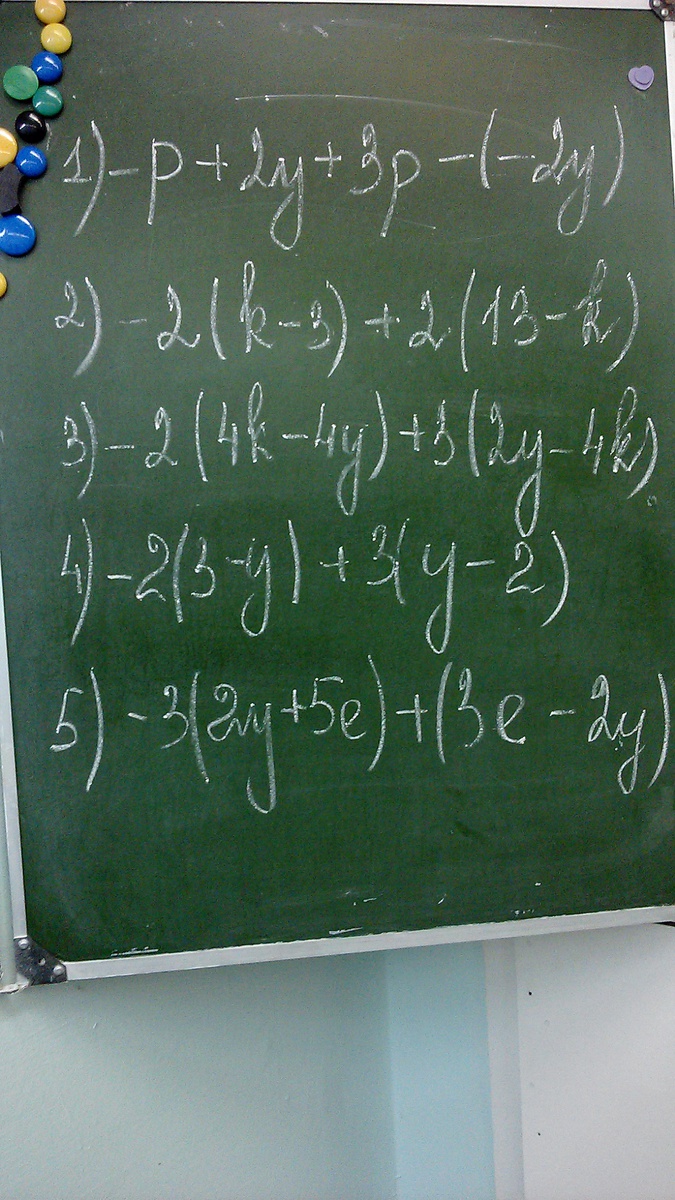 1) -p + 2y + 3p - (-2y)
2) -2(k - 3) + 2(13 - k)
3) -2(4k - 4y) + 3(2y - 4k)
4) -2(3 - y) + 3(y - 2)
5) -3(2y + 5e) + (3e - 2y)